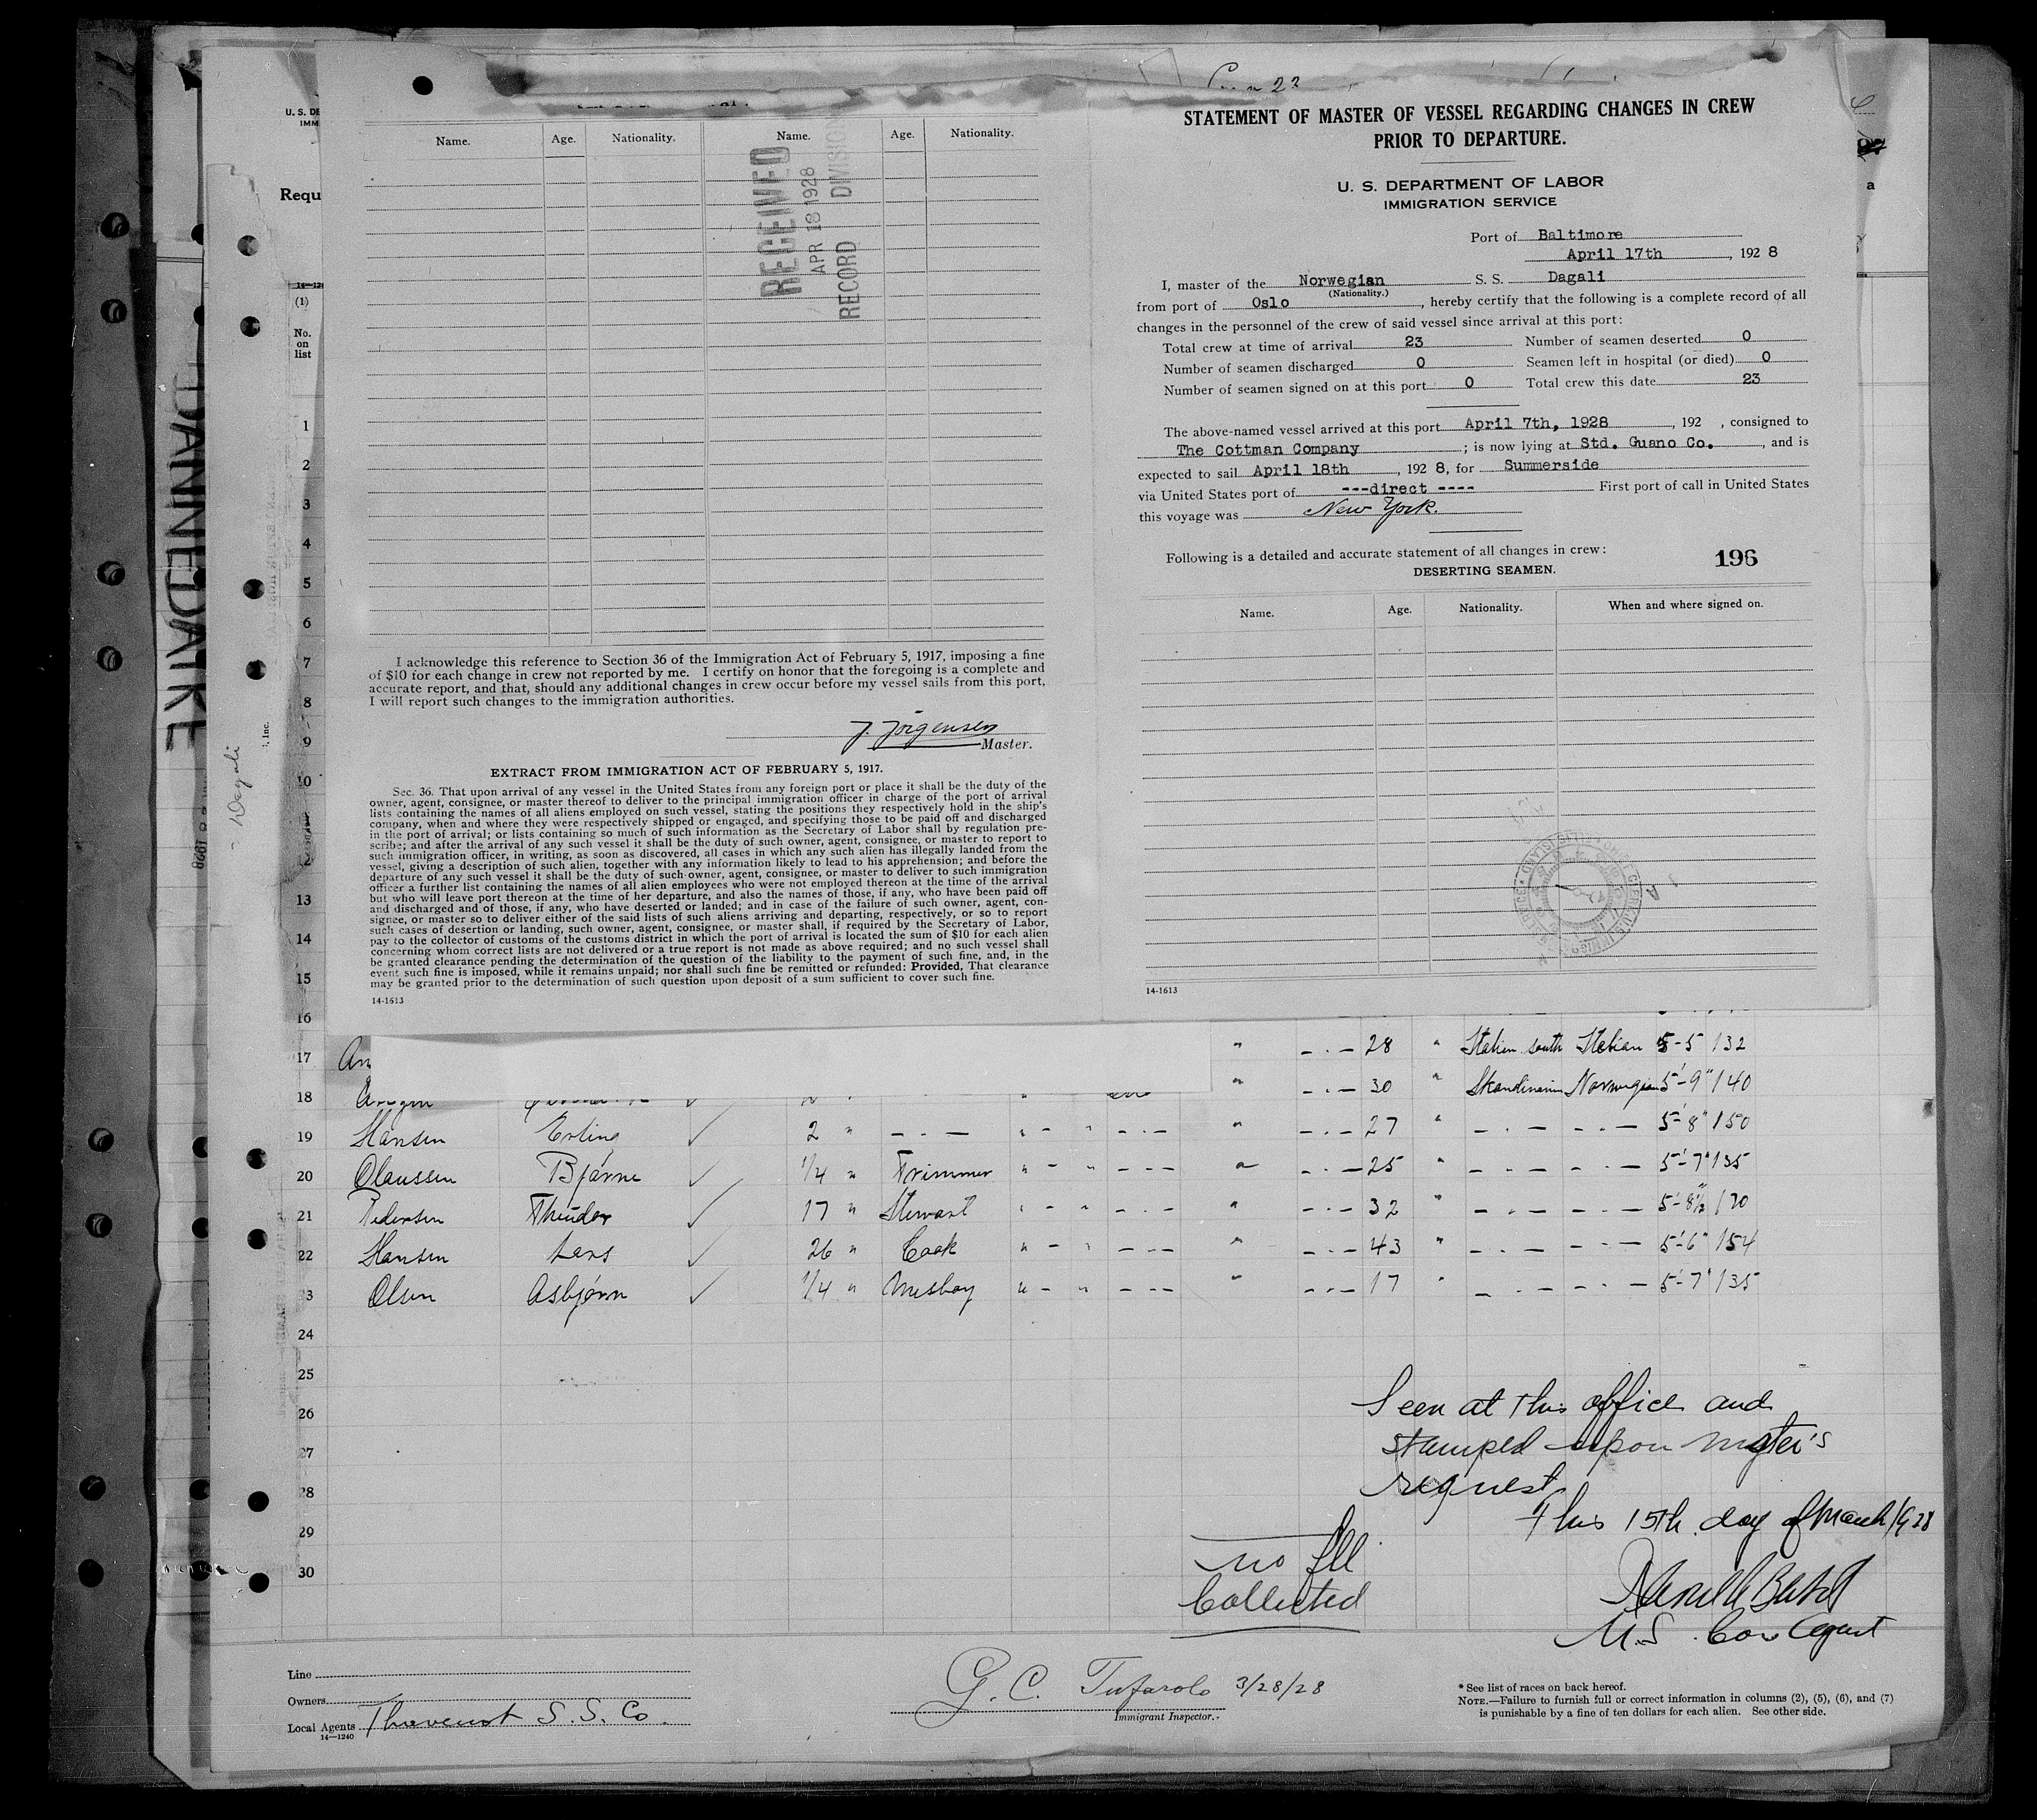 U. S. DE
IMM
Requ
14—124
(1)
No.
on
list
Name. Age. Nationality. Name. Age. Nationality.
RECEIVED
APR 18 1928
RECORD DIVISION
I acknowledge this reference to Section 36 of the Immigration Act of February 5, 1917, imposing a fine
of $10 for each change in crew not reported by me. I certify on honor that the foregoing is a complete and
accurate report, and that, should any additional changes in crew occur before my vessel sails from this port,
I will report such changes to the immigration authorities.
J. Jörgensen
Master.
EXTRACT FROM IMMIGRATION ACT OF FEBRUARY 5, 1917.
Sec. 36. That upon arrival of any vessel in the United States from any foreign port or place it shall be the duty of the
owner, agent, consignee, or master thereof to deliver to the principal immigration officer in charge of the port of arrival
lists containing the names of all aliens employed on such vessel, stating the positions they respectively hold in the ship's
company, when and where they were respectively shipped or engaged, and specifying those to be paid off and discharged
in the port of arrival; or lists containing so much of such information as the Secretary of Labor shall by regulation pre-
scribe; and after the arrival of any such vessel it shall be the duty of such owner, agent, consignee, or master to report to
such immigration officer, in writing, as soon as discovered, all cases in which any such alien has illegally landed from the
vessel, giving a description of such alien, together with any information likely to lead to his apprehension; and before the
departure of any such vessel it shall be the duty of such owner, agent, consignee, or master to deliver to such immigration
officer a further list containing the names of all alien employees who were not employed thereon at the time of the arrival
but who will leave port thereon at the time of her departure, and also the names of those, if any, who have been paid off
and discharged and of those, if any, who have deserted or landed; and in case of the failure of such owner, agent, con-
signee, or master so to deliver either of the said lists of such aliens arriving and departing, respectively, or so to report
such cases of desertion or landing, such owner, agent, consignee, or master shall, if required by the Secretary of Labor,
pay to the collector of customs of the customs district in which the port of arrival is located the sum of $10 for each alien
concerning whom correct lists are not delivered or a true report is not made as above required; and no such vessel shall
be granted clearance pending the determination of the question of the liability to the payment of such fine, and, in the
event such fine is imposed, while it remains unpaid; nor shall such fine be remitted or refunded: Provided, That clearance
may be granted prior to the determination of such question upon deposit of a sum sufficient to cover such fine.
14-1613
STATEMENT OF MASTER OF VESSEL REGARDING CHANGES IN CREW
PRIOR TO DEPARTURE.
U. S. DEPARTMENT OF LABOR
IMMIGRATION SERVICE
Port of Baltimore
April 17th, 1928
I, master of the Norwegian S. S. Dagali
(Nationality.)
from port of Oslo, hereby certify that the following is a complete record of all
changes in the personnel of the crew of said vessel since arrival at this port:
Total crew at time of arrival 23 Number of seamen deserted 0
Number of seamen discharged 0 Seamen left in hospital (or died) 0
Number of seamen signed on at this port 0 Total crew this date 23
The above-named vessel arrived at this port April 7th, 1928, 192 , consigned to
The Cottman Company; is now lying at Std. Guano Co., and is
expected to sail April 18th, 1928, for Summerside
via United States port of ---direct ---- First port of call in United States
this voyage was New York.
Following is a detailed and accurate statement of all changes in crew:
196
DESERTING SEAMEN.
Name. Age. Nationality. When and where signed on.
14-1613
DANNEDAIKE
Dagali
, Inc.
1
2
3
4
5
6
7
8
9
10
12
13
14
15
16
17 An " 28 " Italien south Italian 5-5 132
18 " 30 " Skandinavian Norwegian 5'-9" 140
19 Hansen Erling ✓ 2 " " 27 " 5'-8" 150
20 Olaussen Bjarne ✓ 1/4 " Trimmer " 25 " 5'-7" 135
21 Pedersen Theodor ✓ 17 " Stewart " 32 " 5'-8½" 170
22 Hansen Lars ✓ 26 " Cook " 43 " 5'-6" 154
23 Olsen Asbjørn ✓ 1/4 " Messboy " 17 " 5'-7" 135
24
25
26
27
28
29
30
Seen at this office and
stamped upon master's
request
This 15th day of March 1928
U.S. Con Agent
no fee
Collected
Line
Owners
Local Agents Thevenot S. S. Co.
14—1240
G. C. Tufarolo 3/28/28
Immigrant Inspector.
* See list of races on back hereof.
NOTE.—Failure to furnish full or correct information in columns (2), (5), (6), and (7)
is punishable by a fine of ten dollars for each alien. See other side.